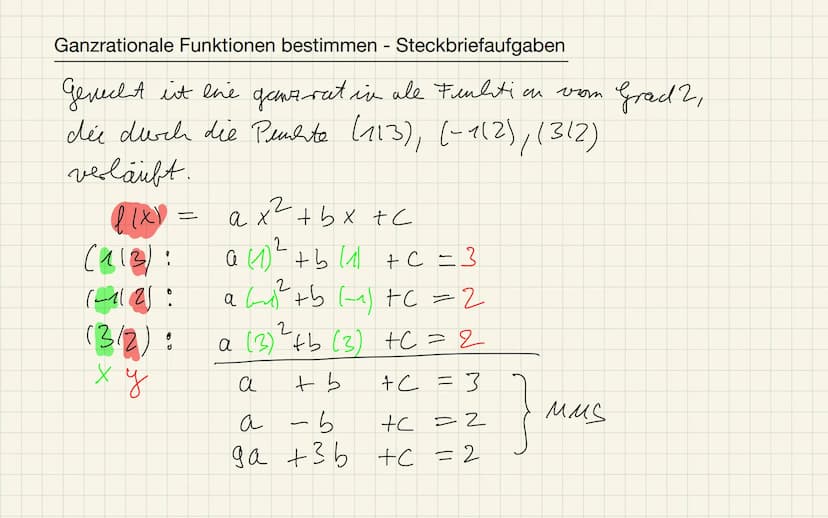 Ganzrationale Funktionen bestimmen - Steckbriefaufgaben
Gesucht ist eine ganzrationale Funktion vom Grad 2,
die durch die Punkte (1|3), (-1|2), (3|2)
verläuft.
f(x) = ax² + bx + c
(1|3): a(1)² + b(1) + c = 3
(-1|2): a(-1)² + b(-1) + c = 2
(3|2): a(3)² + b(3) + c = 2
x y
a + b + c = 3
a - b + c = 2
9a + 3b + c = 2
MMS